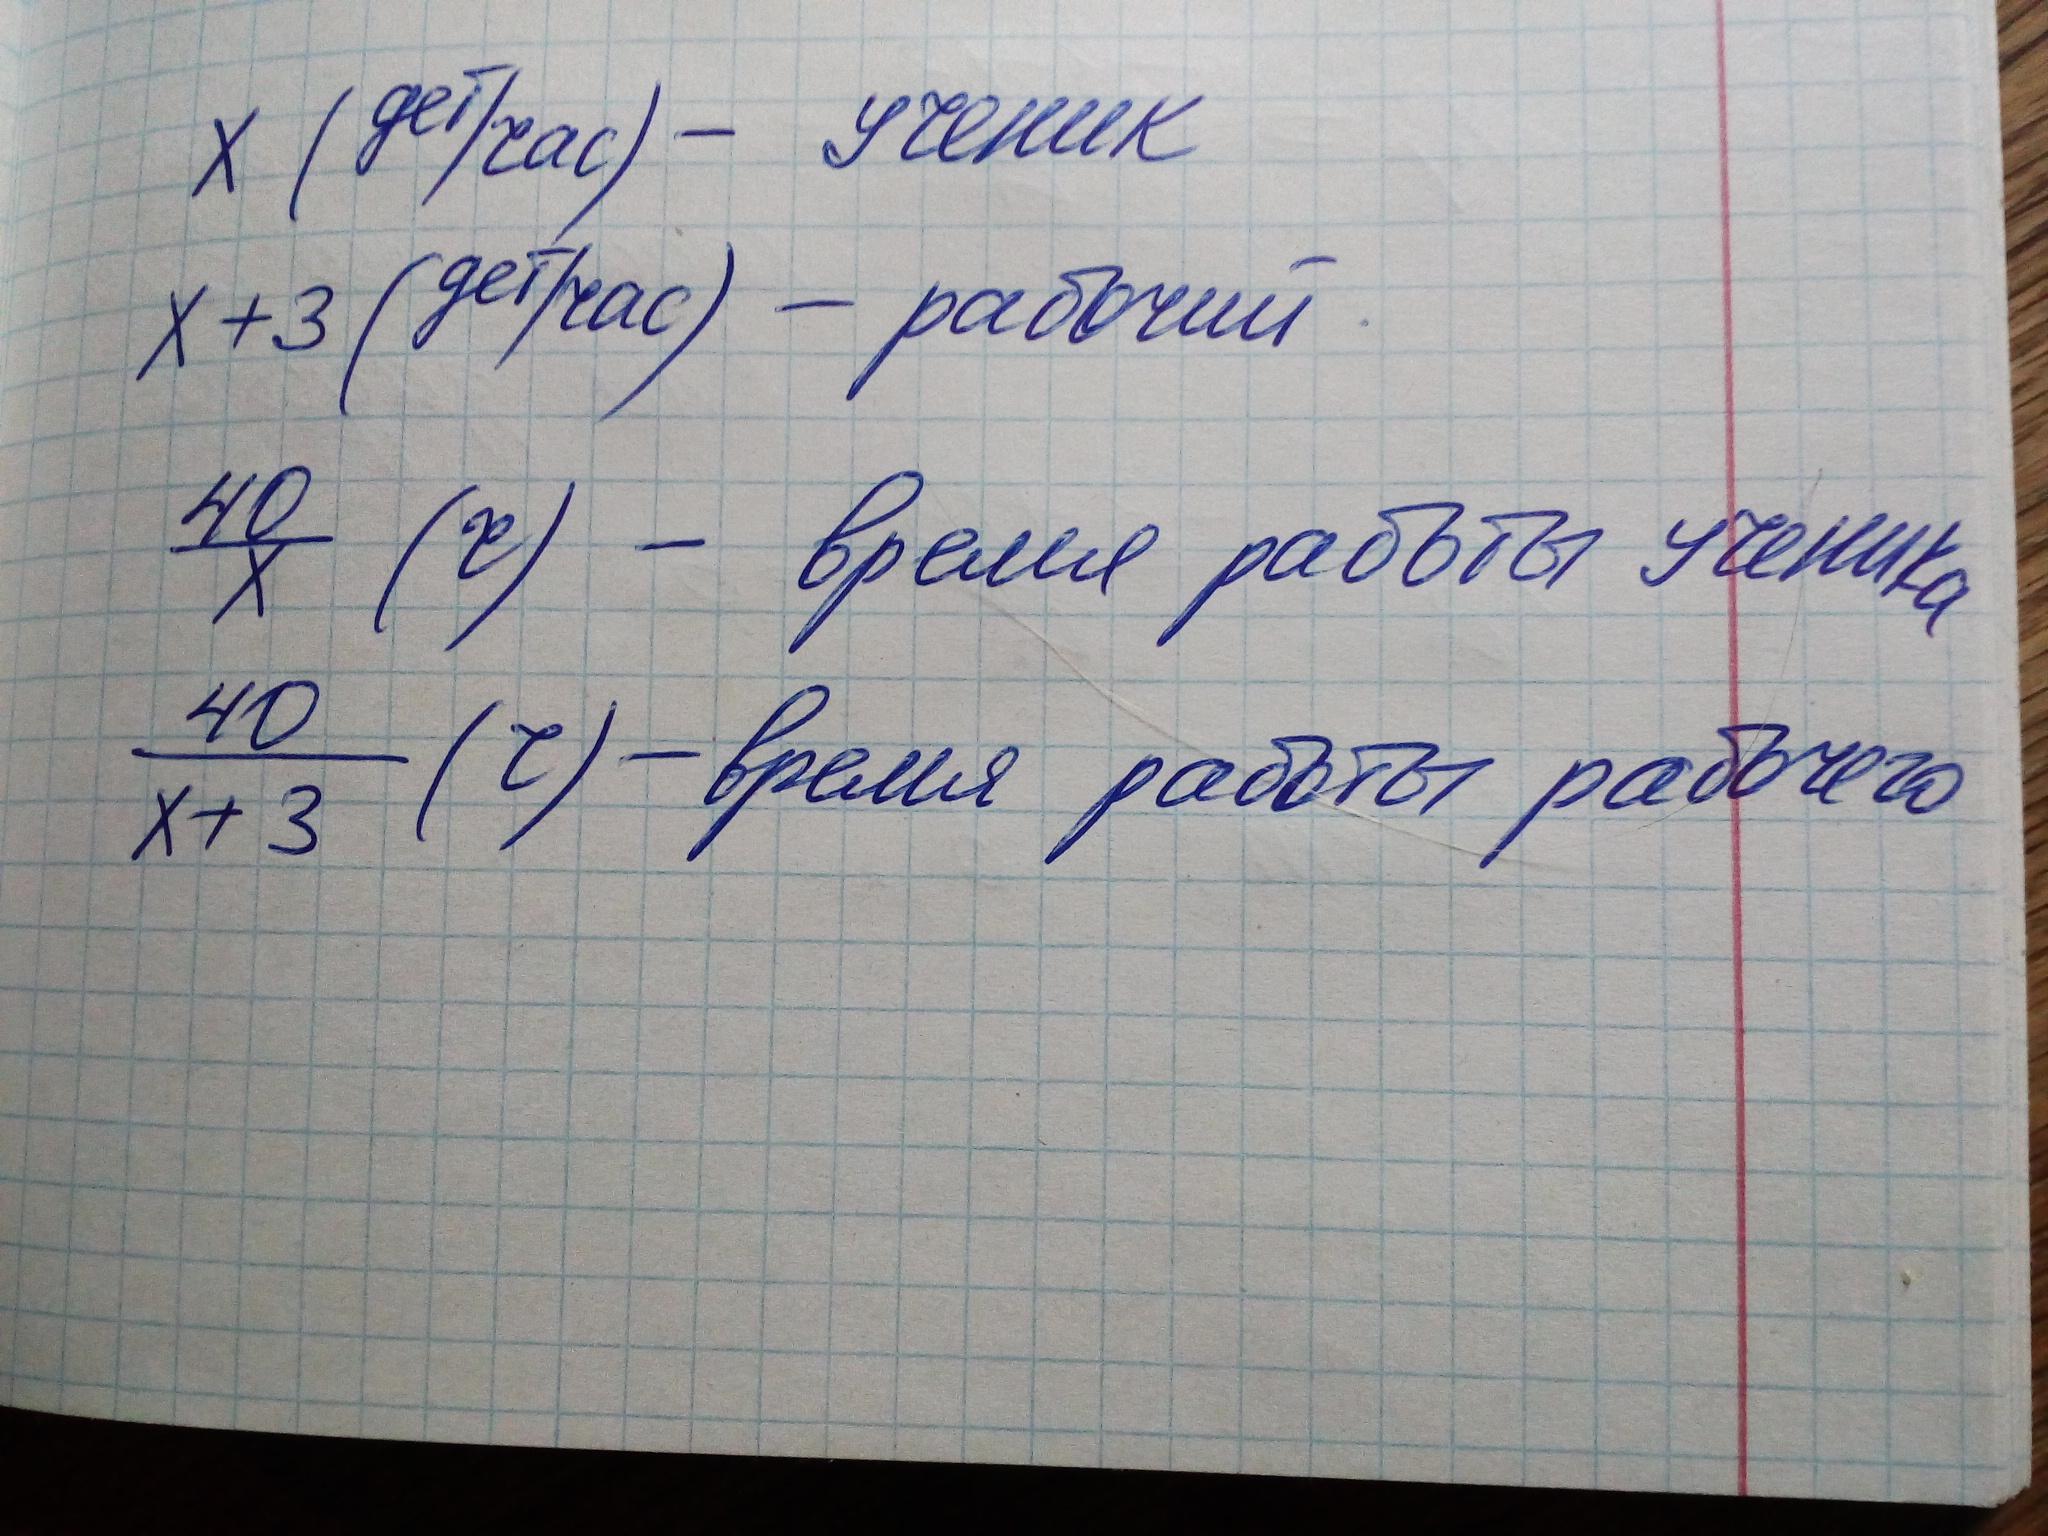 x (дет/час) - ученик
x+3 (дет/час) - рабочий
40/x (ч) - время работы ученика
40/x+3 (ч) - время работы рабочего